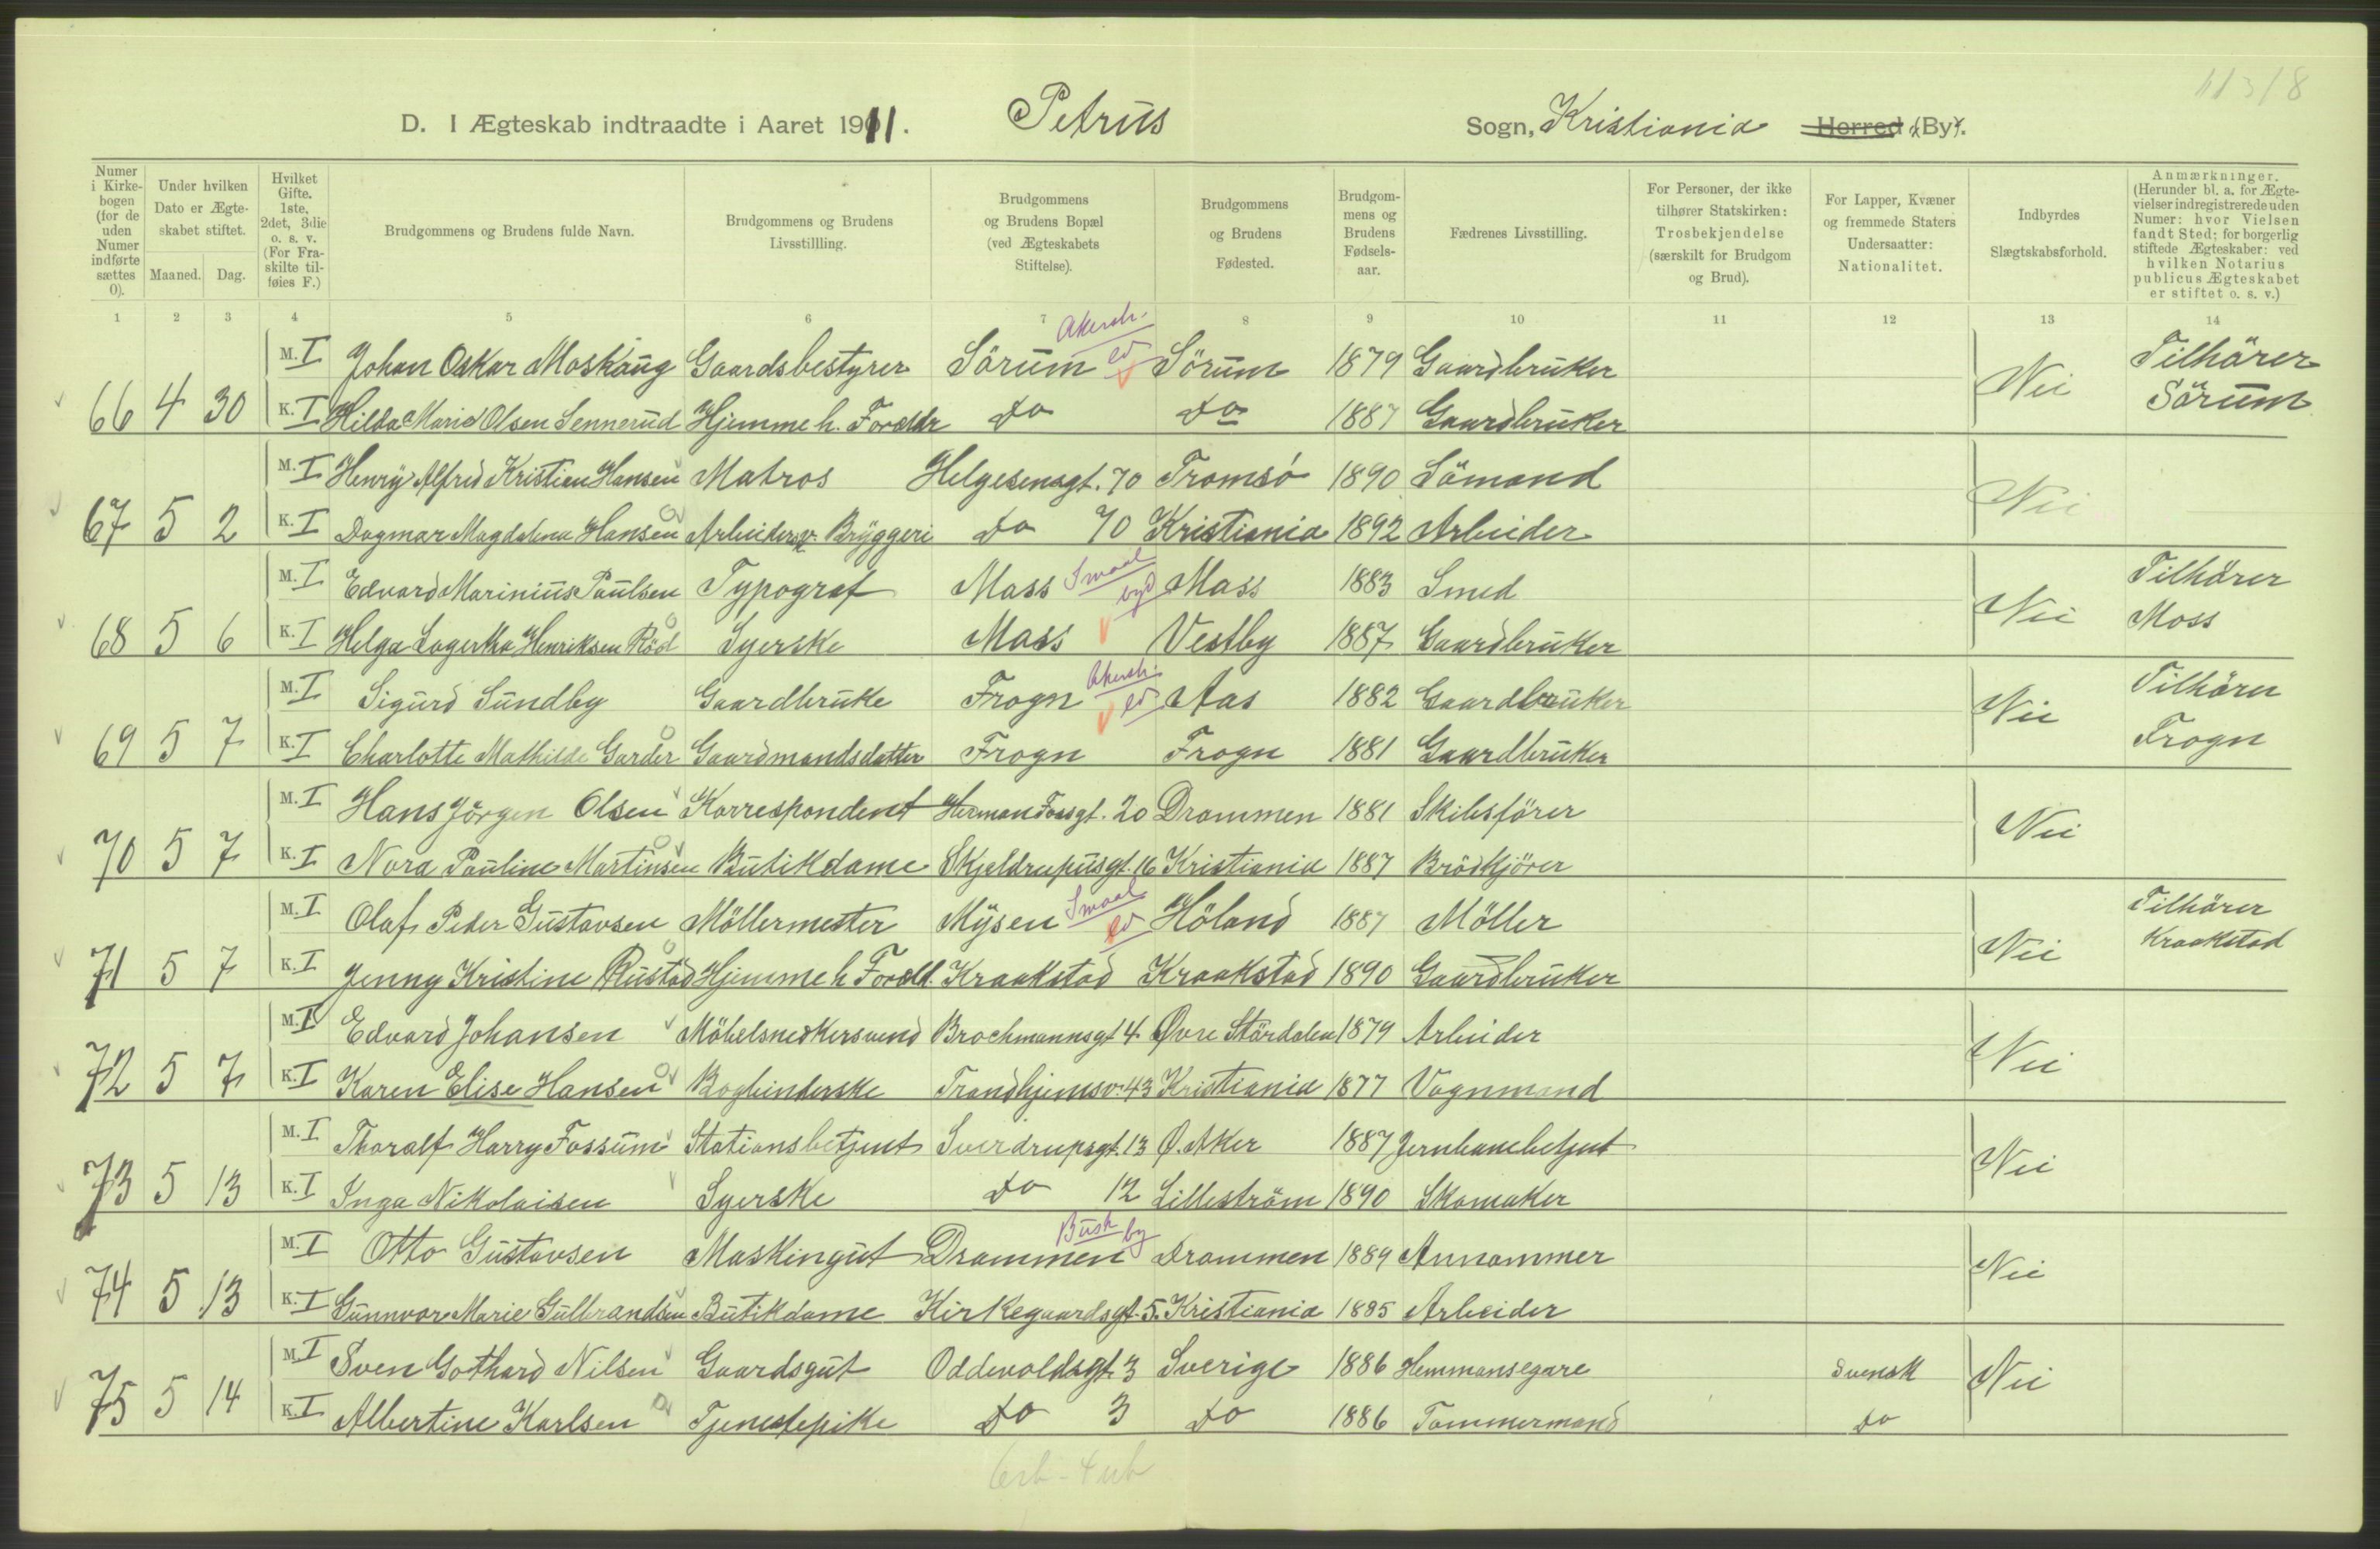 11318
D. I Ægteskab indtraadte i Aaret 1911. Petrus Sogn, Kristiania Herred (By).
Numer i Kirkebogen (for de uden Numer indførte sættes 0).
Under hvilken Dato er Ægteskabet stiftet.
Maaned. Dag.
Hvilket Gifte. 1ste, 2det, 3die o. s. v. (For Fraskilte tilføies F.)
Brudgommens og Brudens fulde Navn.
Brudgommens og Brudens Livsstillling.
Brudgommens og Brudens Bopæl (ved Ægteskabets Stiftelse).
Brudgommens og Brudens Fødested.
Brudgommens og Brudens Fødselsaar.
Fædrenes Livsstilling.
For Personer, der ikke tilhører Statskirken: Trosbekjendelse (særskilt for Brudgom og Brud).
For Lapper, Kvæner og fremmede Staters Undersaatter: Nationalitet.
Indbyrdes Slægtskabsforhold.
Anmærkninger. (Herunder bl. a. for Ægtevielser indregistrerede uden Numer: hvor Vielsen fandt Sted; for borgerlig stiftede Ægteskaber: ved hvilken Notarius publicus Ægteskabet er stiftet o. s. v.)
1 2 3 4 5 6 7 8 9 10 11 12 13 14
Akersh. ld
M. I Johan Oskar Moskaug Gaardsbestyrer Sörum Sörum 1879 Gaardbruker Nei Tilhörer
66 4 30 K. I Hilda Marie Olsen Sennerud Hjemme h. Forældr do do 1887 Gaardbruker Sörum
M. I Henry Alfred Kristian Hansen Matros Helgesensgt. 70 Tromsö 1890 Sömand Nei
67 5 2 K. I Dagmar Magdalena Hansen Arbeiderv. Bryggeri do 70 Kristiania 1892 Arbeider
M. I Edvard Marinius Paulsen Typograf Moss Smaal byd Moss 1883 Smed Nei Tilhörer
68 5 6 K. I Helga Lagertha Henriksen Röd Syerske Moss Vestby 1887 Gaardbruker Moss
M. I Sigurd Sundby Gaardbruke Frogn Akersh. ld Aas 1882 Gaardbruker Nei Tilhörer
69 5 7 K. I Charlotte Mathilde Garder Gaardmandsdatter Frogn Frogn 1881 Gaardbruker Frogn
M. I Hans Jörgen Olsen Korrespondent Herman Fossgt. 20 Drammen 1881 Skibsförer Nei
70 5 7 K. I Nora Pauline Martinsen Butikdame Skjeldrupusgt. 16 Kristiania 1887 Brödkjörer
M. I Olaf Peder Gustavsen Möllermester Mysen Smaal ld Höland 1887 Möller Nei Tilhörer
71 5 7 K. I Jenny Kristine Rustad Hjemme h Foræld. Kraakstad Kraakstad 1890 Gaardbruker Kraakstad
M. I Edvard Johansen Möbelsnedkersvend Brochmannsgt 4 Øvre Stördalen 1879 Arbeider Nei
72 5 7 K. I Karen Elise Hansen Bogbinderske Trondhjemsv. 43 Kristiania 1877 Vognmand
M. I Thoralf Harry Fossum Stationsbetjent Sverdrupsgt. 13 Ø. Aker 1887 Jernbanebetjent Nei
73 5 13 K. I Inga Nikolaisen Syerske do 12 Lilleström 1890 Skomaker
M. I Otto Gustavsen Maskingut Drammen Busk by Drammen 1889 Annammer Nei
74 5 13 K. I Gunnvor Marie Gulbrandsen Butikdame Kirkegaardsgt. 5. Kristiania 1885 Arbeider
M. I Sven Gothard Nilsen Gaardsgut Oddevoldsgt 3 Sverige 1886 Hemmansegare Svensk Nei
75 5 14 K. I Albertine Karlsen Tjenestepike do 3 do 1886 Tömmermand do
6rb - 4ub